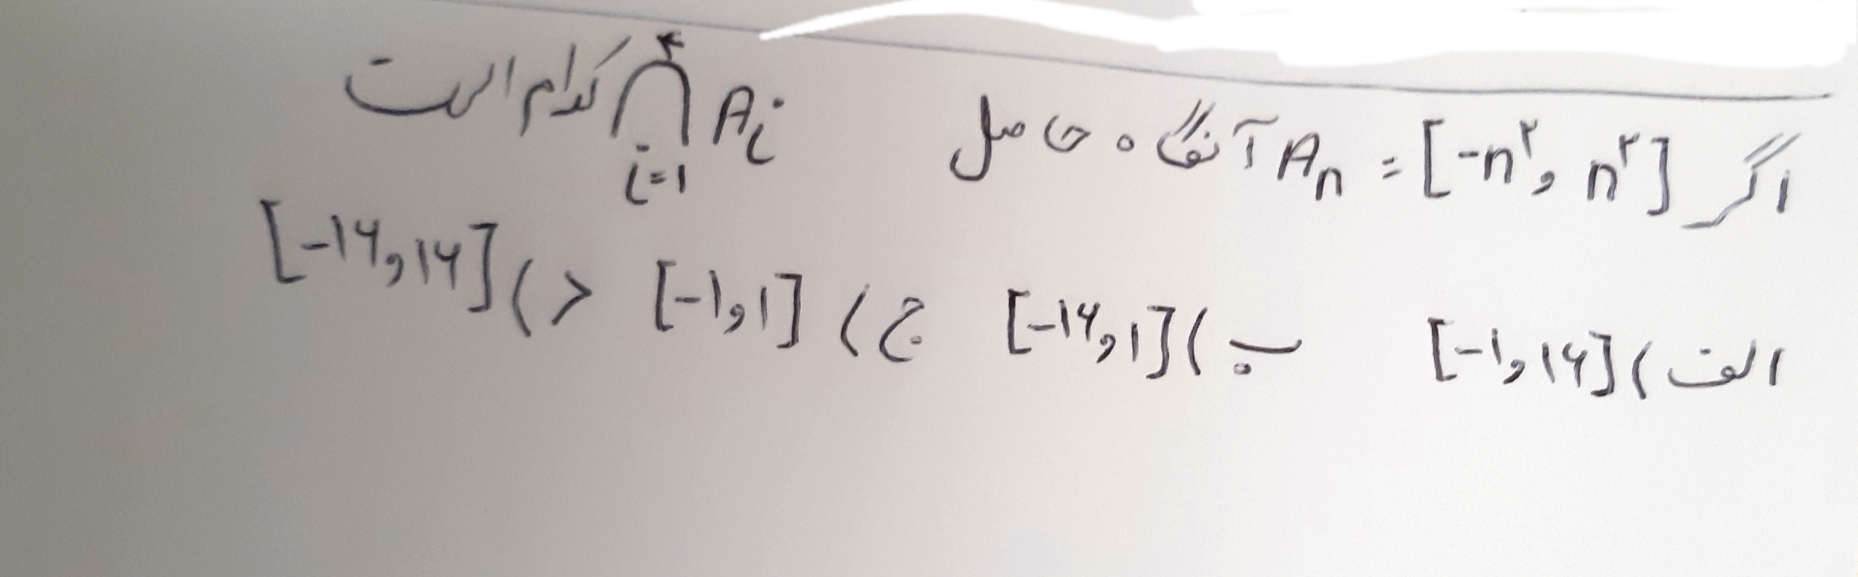 اگر A_n = [-n², n²] آنگاه حاصل ⋂_{i=1}^{۴} A_i کدام است
الف) [-۱, ۱۶] ب) [-۱۶, ۱] ج) [-۱, ۱] د) [-۱۶, ۱۶]